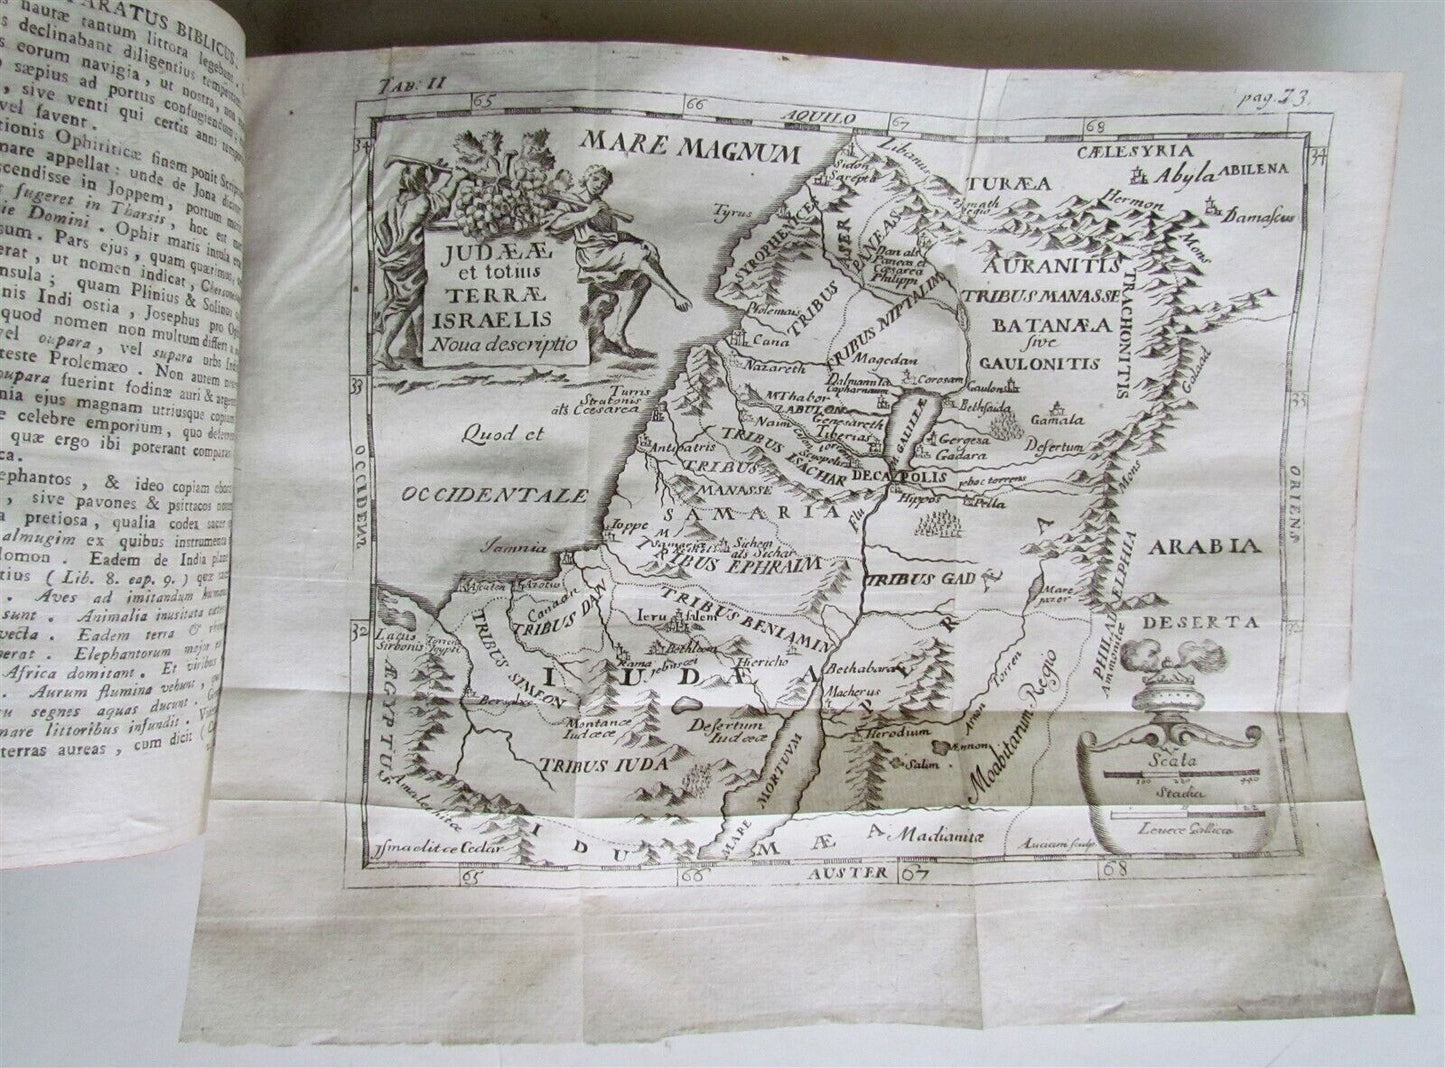 PARATUS BIBLICUS.
nauræ tantum littora legebant.
declinabant diligentius tempestatem
eorum navigia, ut nostra, non
sæpius ad portus confugiendum
, sive venti qui certis anni
vel favent.
tionis Ophiriticæ finem ponit
mare appellat: unde de Jona dicitur
scendisse in Joppem, portum
fugeret in Tharsis, hoc est
cie Domini. Ophir maris insula
sum. Pars ejus, quam quærimus,
erat, ut nomen indicat,
nsula; quam Plinius & Solinus
nis Indi ostia, Josephus pro
quod nomen non multum differt
vel oupara, vel supara urbs
teste Ptolemæo. Non autem
oupara fuerint fodinæ auri &
nia ejus magnam utriusque
e celebre emporium, quo
quæ ergo ibi poterant
ca.
ephantos, & ideo copiam
, sive pavones & psittacos
a pretiosa, qualia codex sacer
almugim ex quibus instrumenta
lomon. Eadem de India
tius (Lib. 8. cap. 9.) quæ
. Aves ad imitandum
sunt. Animalia inusitata
vecta. Eadem terra &
nerat. Elephantorum major
Africa domitant. Et viribus
. Aurum flumina vehunt,
segnes aquas ducunt.
mare littoribus infundit.
terras aureas, cum dicit (
TAB: II
pag. 23.
65 66 67 68
AQUILO
34
34
33
33
32
32
OCCIDENS
ORIENS
MARE MAGNUM
JUDÆÆ
et totius
TERRÆ
ISRAELIS
Nova descriptio
CÆLESYRIA
Abyla ABILENA
Damascus
Libanus
Sidon
Sarepta
TURÆA
Hermon
Mons
Tyrus
SYROPHENICES
ASER
PANEAS
Dan als
Paneas et
Cæsarea
Philippi
AURANITIS
TRACHONITIS
TRIBUS MANASSE
BATANÆA
sive
GAULONITIS
Ptolemais
TRIBUS
TRIBUS NIPTALIM
Cana
Nazareth
Magedan
Dalmanuta
Capharnaum
Corosam
Gaulon
Galaad
Turris
Stratonis
als Cæsarea
M Thabor
ZABULON
Genesareth
Tiberias
Bethsaida
Gamala
Naim
Gergesa
Gadara
Desertum
M. GALILEÆ
Quod et
OCCIDENTALE
Antipatris
TRIBUS ISACHAR
torrens
Scitopolis
DECAPOLIS
Jeboc torrens
TRIBUS
MANASSE
Hippos
Pella
Mons
SAMARIA
Flu
Ioppe
Samaria
Sichem
als Sichar
Iamnia
TRIBUS EPHRAIM
TRIBUS GAD
ARABIA
Mare
jazer
PHILADELPHIA
Ammonitæ
DESERTA
Ascalon
Azotus
Canaan
TRIBUS DAN
TRIBUS BENIAMIN
Ierusalem
Lacus
Sirbonis
Torrens
Egypti
TRIBUS SIMEON
Rama
Bethleem
Jebuscei
Hiericho
Bethabara
IUDÆA
Macherus
Torren
Arnon
Moabitarum Regio
ÆGYPTUS
Montance
Iudææ
Desertum
Iudææ
Herodium
Ænnon
Salim
TRIBUS IUDA
MARE MORTUUM
Scala
100 220 440
Stadia
Leucæ Gallicæ
Amalechitæ
Ismaelitæ Cedar
IDUMÆA
Madianitæ
Auciam sculp.
65 66 AUSTER 67 68